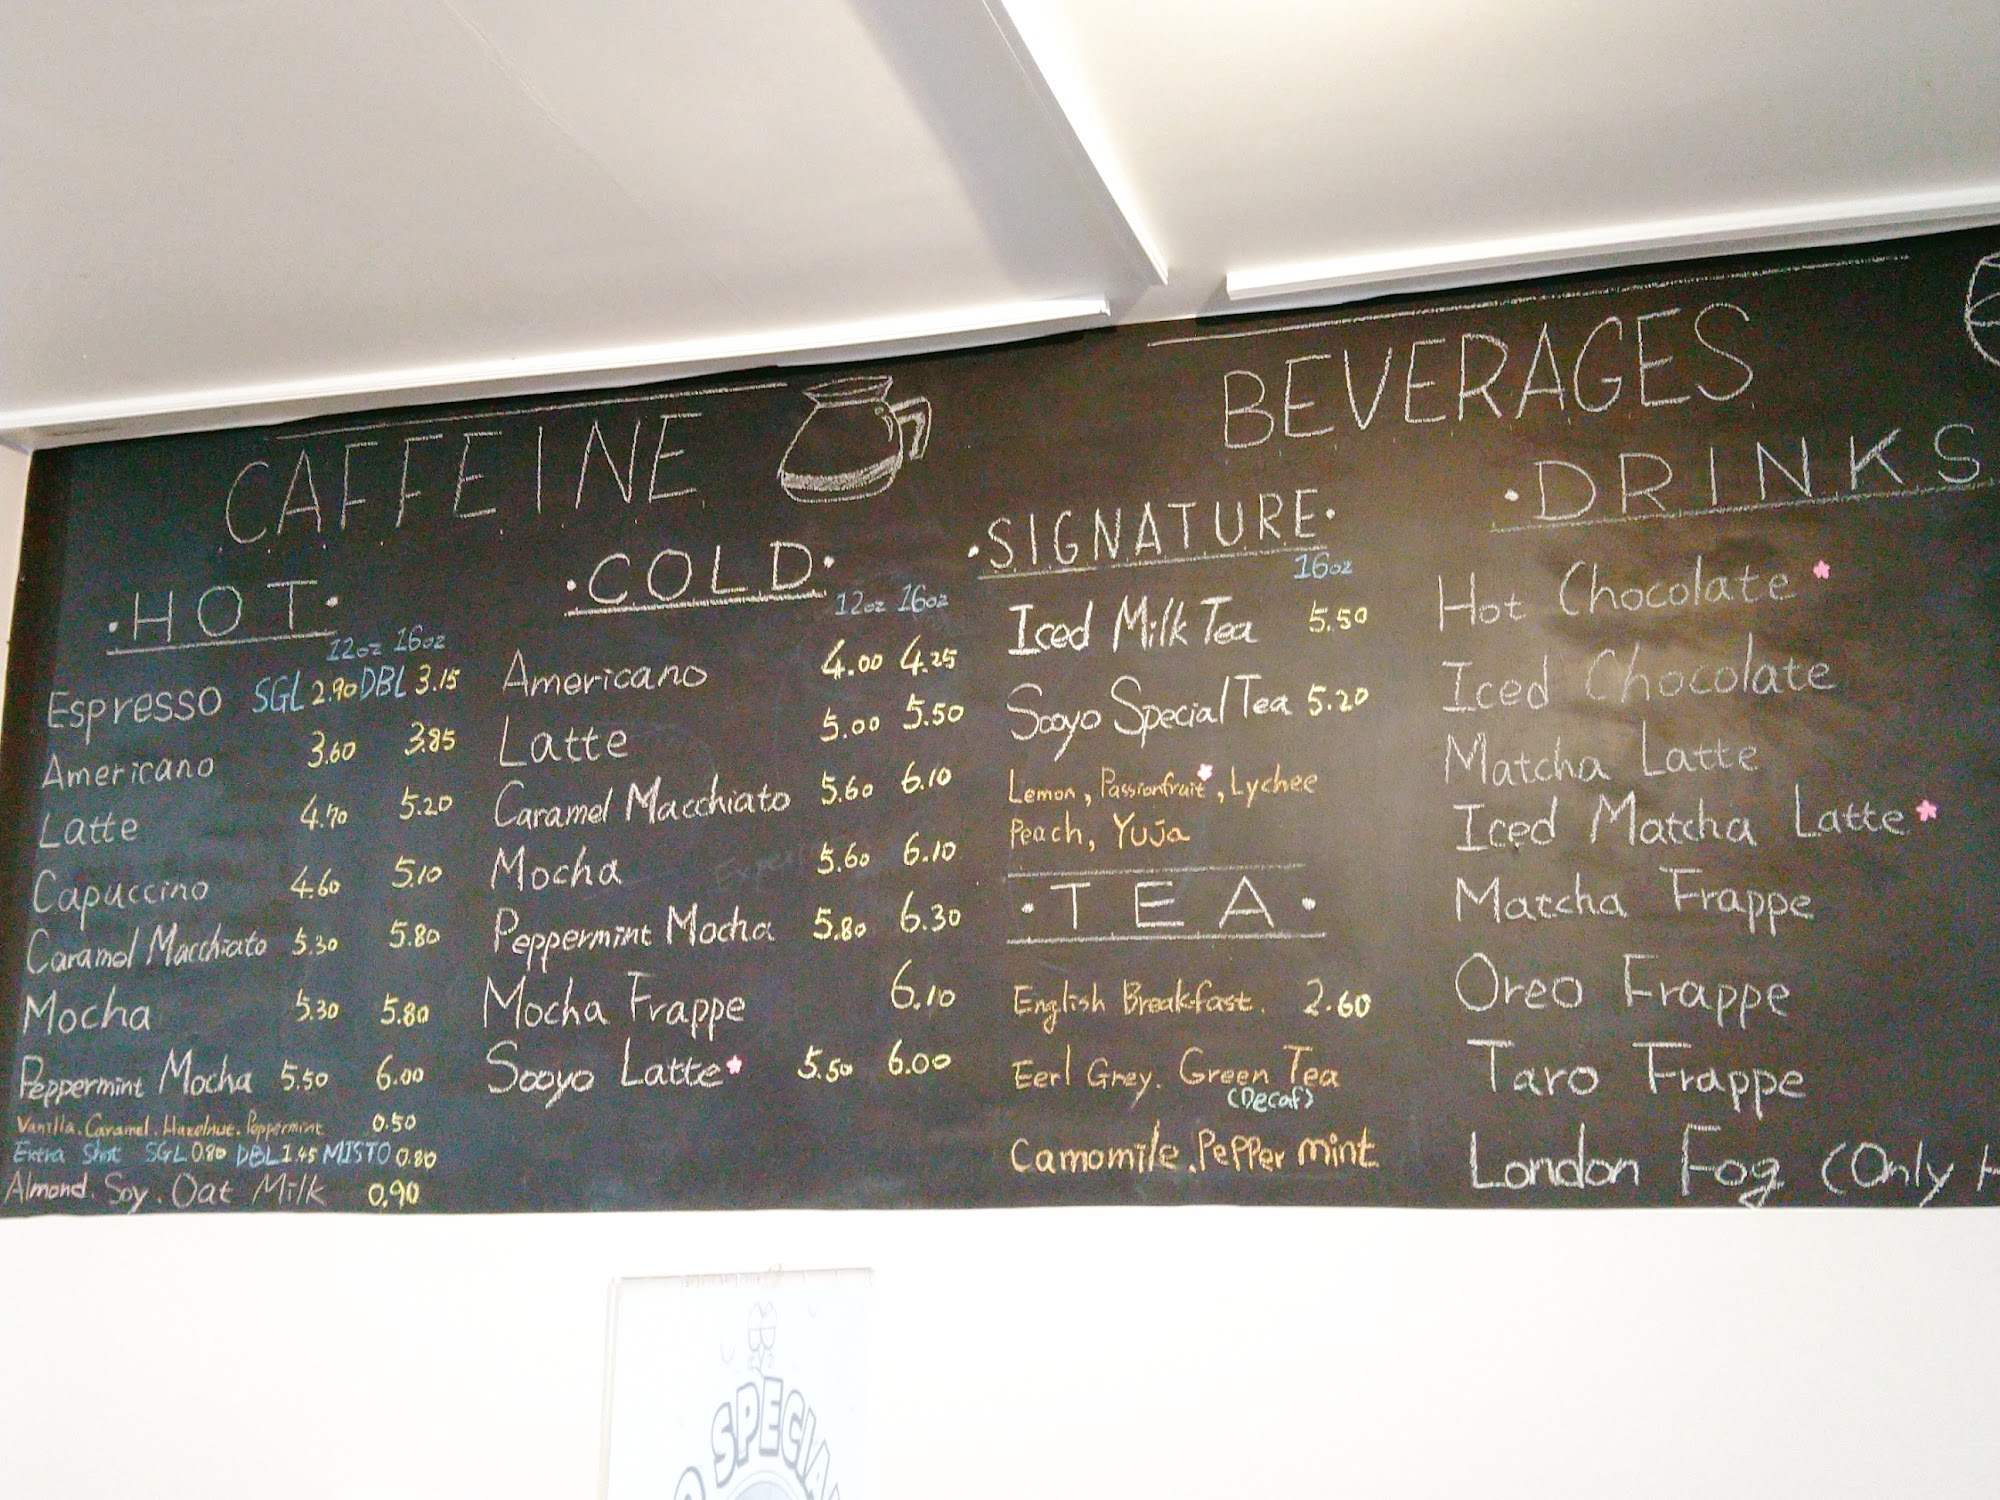 CAFFEINE
·HOT·
12oz 16oz
Espresso SGL 2.90 DBL 3.15
Americano 3.60 3.85
Latte 4.70 5.20
Capuccino 4.60 5.10
Caramel Macchiato 5.30 5.80
Mocha 5.30 5.80
Peppermint Mocha 5.50 6.00
Vanilla. Caramel. Hazelnue. Peppermint 0.50
Extra Shot SGL 0.80 DBL 1.45 MISTO 0.80
Almond. Soy. Oat Milk 0.90
·COLD·
12oz 16oz
Americano 4.00 4.25
Latte 5.00 5.50
Caramel Macchiato 5.60 6.10
Mocha 5.60 6.10
Peppermint Mocha 5.80 6.30
Mocha Frappe 6.10
Sooyo Latte 5.50 6.00
BEVERAGES
·SIGNATURE·
16oz
Iced Milk Tea 5.50
Sooyo Special Tea 5.20
Lemon, Passionfruit, Lychee
Peach, Yuja
·TEA·
English Breakfast. 2.60
Eerl Grey. Green Tea
(Decaf)
Camomile. Peppermint
·DRINKS
Hot Chocolate
Iced Chocolate
Matcha Latte
Iced Matcha Latte
Matcha Frappe
Oreo Frappe
Taro Frappe
London Fog (Only H
SPECIAL